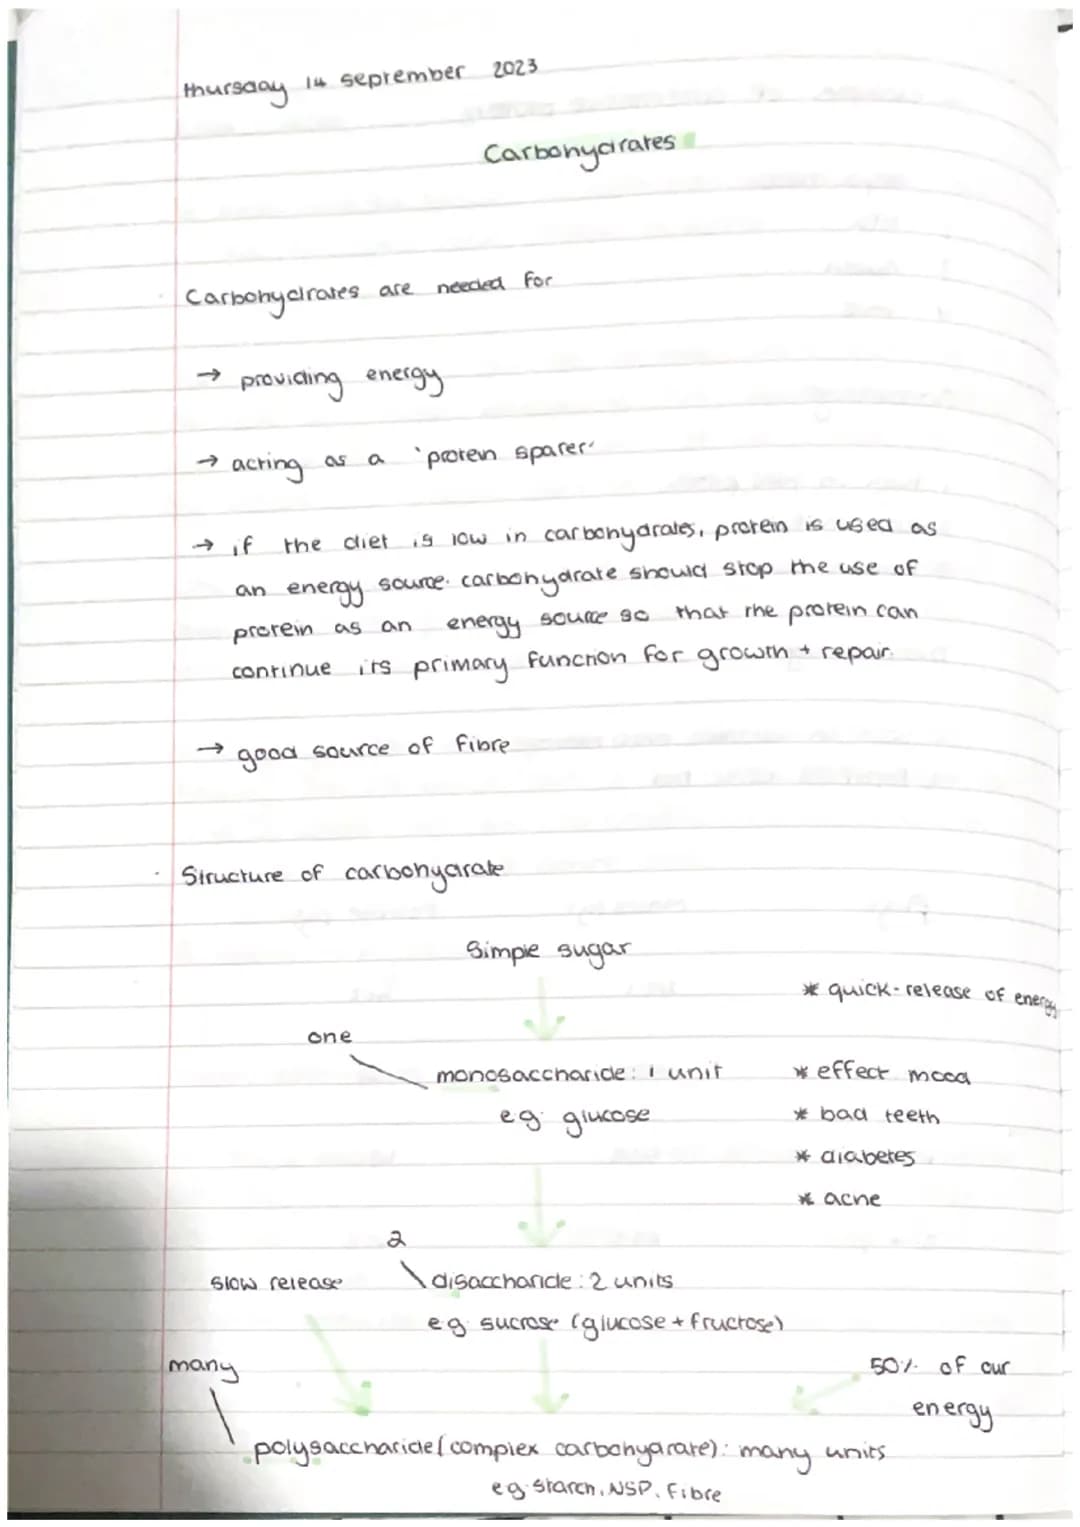 thursday 14 september 2023
Carbohydrates
Carbohydrates are needed for
→ providing energy
→ acting as a 'protein sparer'
→ if the diet is low in carbohydrates, protein is used as
an energy source. carbohydrate should stop the use of
protein as an energy source so that the protein can
continue its primary function for growth + repair.
→ good source of fibre
· Structure of carbohydrate
Simple sugar
* quick-release of energy
one
monosaccharide: 1 unit
* effect mood
eg. glucose
* bad teeth
* diabetes
* acne
2
slow release
disaccharide: 2 units
eg. sucrose (glucose + fructose)
many
50% of our
energy
polysaccharide (complex carbohydrate): many units
eg. starch, NSP, fibre